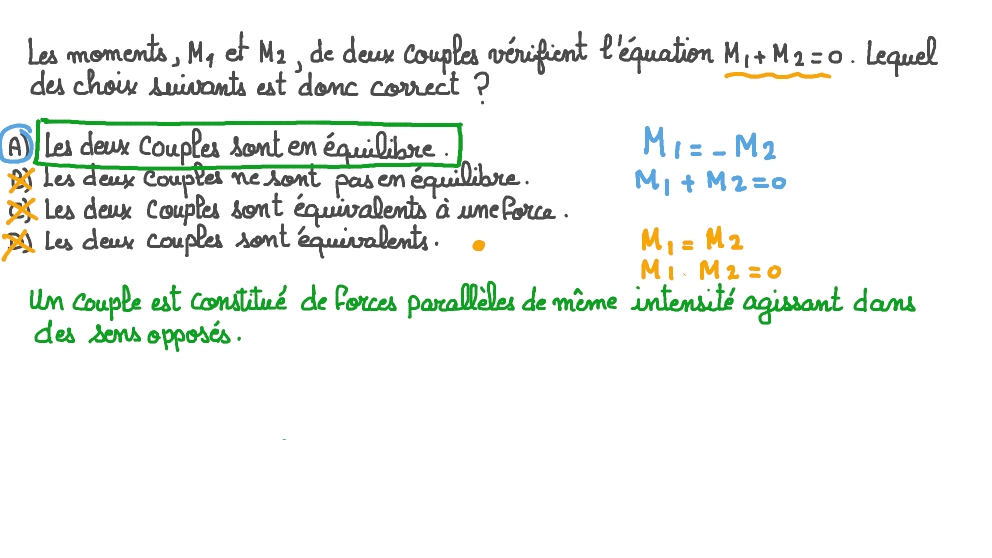 Les moments, M1 et M2, de deux couples vérifient l'équation M1+M2=0. Lequel
des choix suivants est donc correct ?
A) Les deux couples sont en équilibre.
B) Les deux couples ne sont pas en équilibre.
C) Les deux couples sont équivalents à une force.
D) Les deux couples sont équivalents.
M1 = - M2
M1 + M2 = 0
M1 = M2
M1 - M2 = 0
Un couple est constitué de forces parallèles de même intensité agissant dans
des sens opposés.